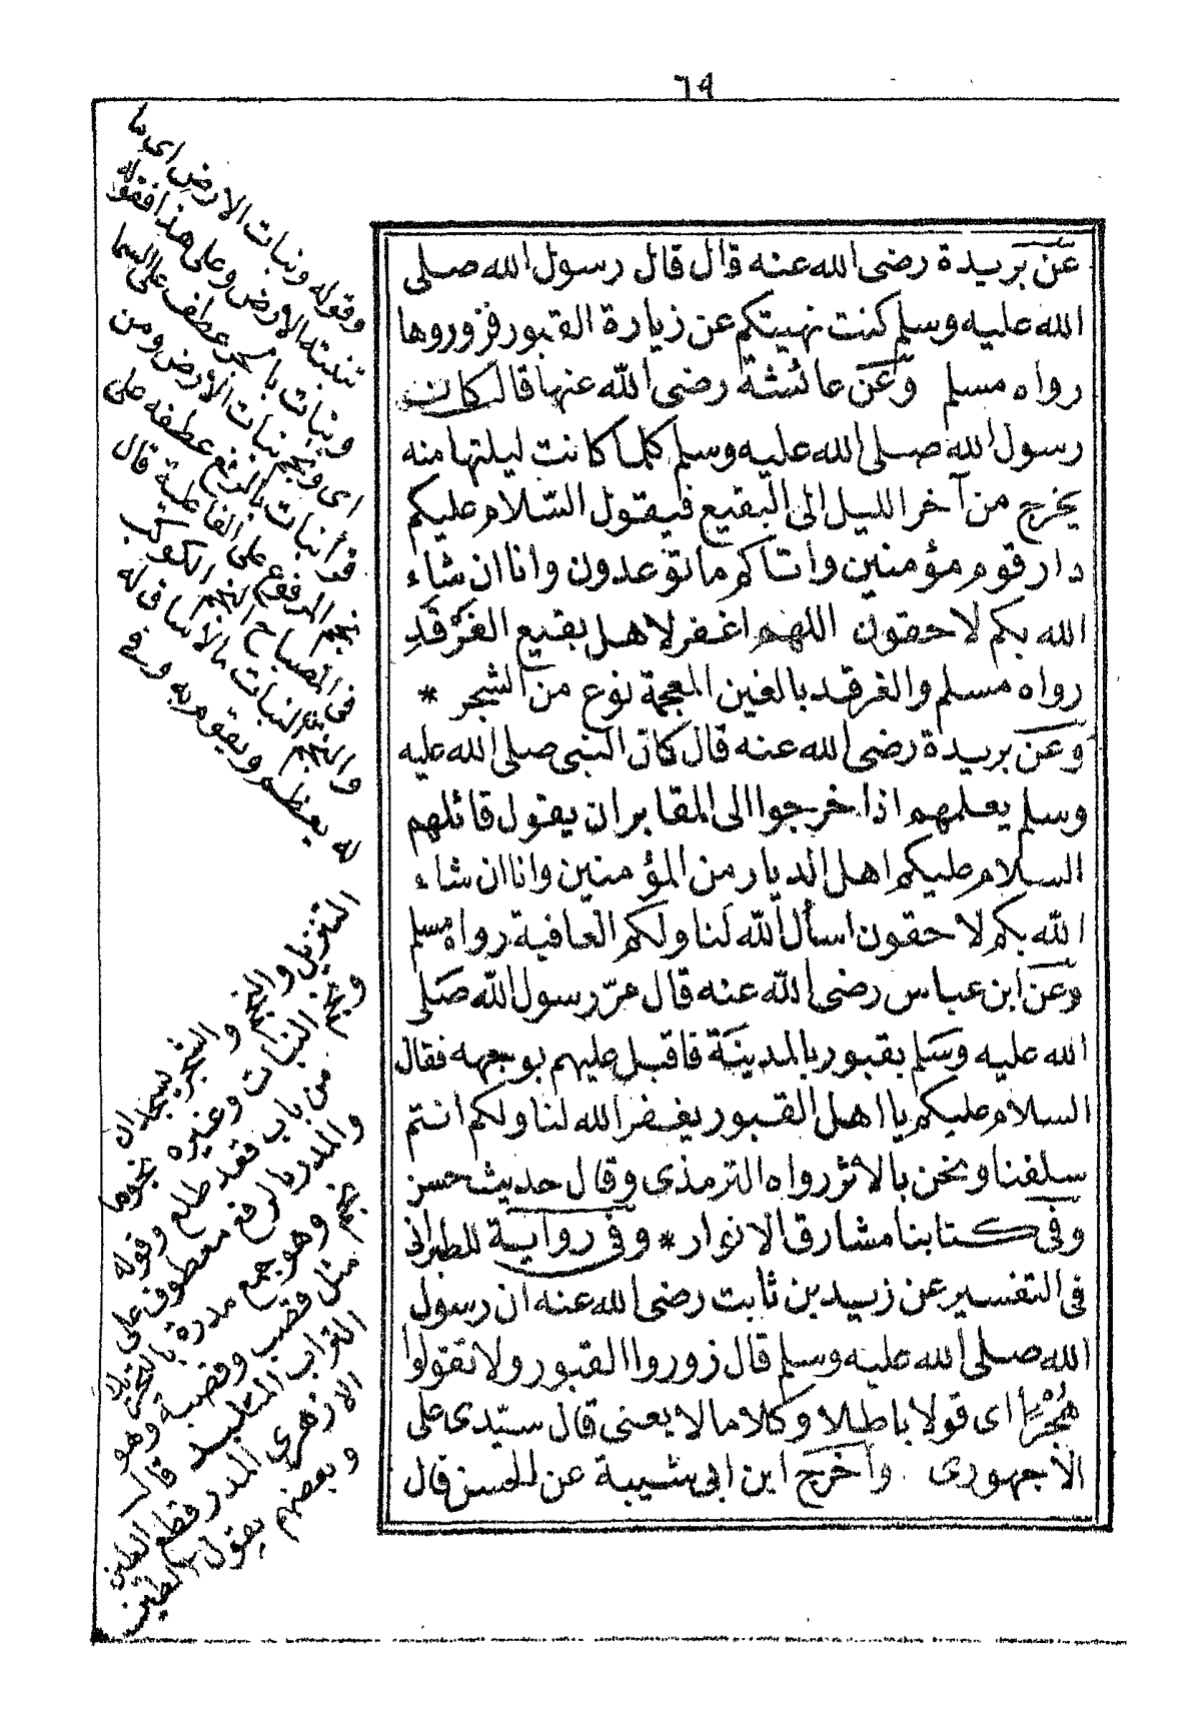 ٦٩
عن بريدة رضى الله عنه قال قال رسول الله صلى
الله عليه وسلم كنت نهيتكم عن زيارة القبور فزوروها
رواه مسلم وعن عائشة رضى الله عنها قالت كان
رسول الله صلى الله عليه وسلم كلما كانت ليلتها منه
يخرج من آخر الليل الى البقيع فيقول السّلام عليكم
دار قوم مؤمنين وأتاكم ما توعدون وانا ان شاء
الله بكم لاحقون اللهم اغفر لاهل بقيع الغَرْقَدِ
رواه مسلم والغرقد بالغين المعجمة نوع من الشجر *
وعن بريدة رضى الله عنه قال كان النبى صلى الله عليه
وسلم يعلمهم اذا خرجوا الى المقابر ان يقول قائلهم
السلام عليكم اهل الديار من المؤمنين وانا ان شاء
الله بكم لاحقون اسأل الله لنا ولكم العافية رواه مسلم
وعن ابن عباس رضى الله عنه قال مرّ رسول الله صَلى
الله عليه وسَلم بقبور بالمدينَة فاقبل عليهم بوجهه فقال
السلام عليكم يا اهل القبور يغفر الله لنا ولكم انتم
سلفنا ونحن بالأثر رواه الترمذى وقال حديث حسن
وفى كتابنا مشارق الانوار * وفى رواية للطبرانى
فى التفسير عن زيد بن ثابت رضى الله عنه ان رسول
الله صلى الله عليه وسلم قال زوروا القبور ولا تقولوا
هُجْرًا أى قولا باطلا وكلاما لا يعنى قال سيّدى على
الأجهورى وأخرج ابن ابى شيبة عن الحسن قال
وقوله ونبات الارض اى ما
تنبته الارض وعلى هذا فقوله
ونبات بالجر عطف على السما
اى ونجم نبات الارض ومن
قرأ نبات بالرفع عطفه على
نجم المرفوع على الفاعلية قال
فى المصباح النجم الكوكب
والنجم من النبات ما لا ساق له
له يعظم ويقوم به وفى
التنزيل والنجم والشجر يسجدان
ونجم النبات وغيره نجوما
من باب قعد طلع وقوله
والمدر بالرفع معطوف على
نجم وهو جمع مدرة بالتحريك
مثل قصب وقصبة وهو
التراب المتلبد قال
الازهرى المدر قطع الطين
وبعضهم يقول الطين